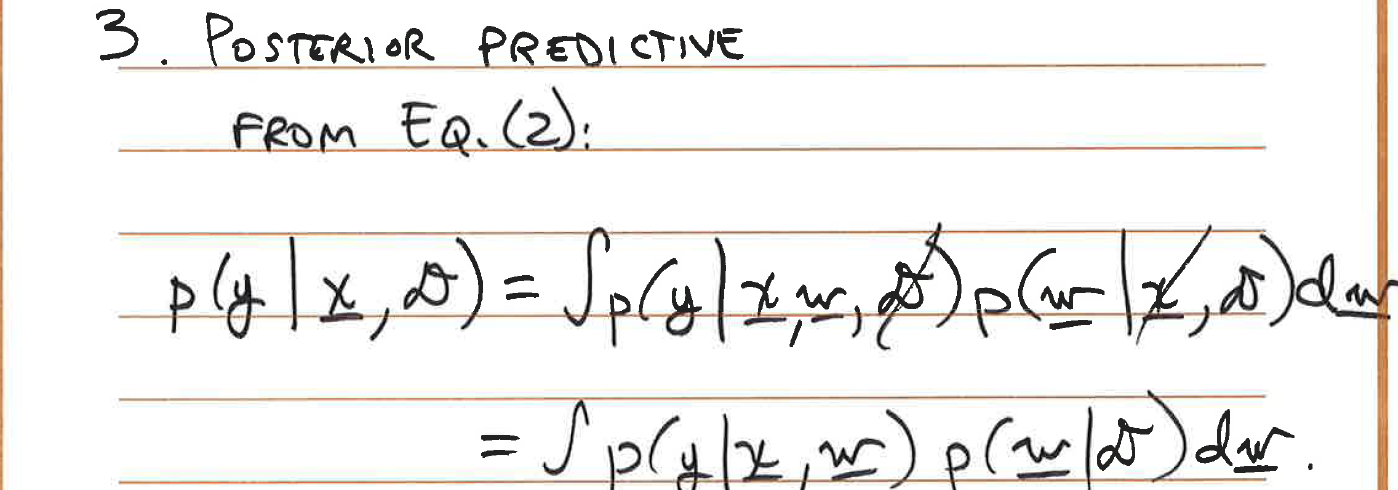 3. POSTERIOR PREDICTIVE
FROM EQ. (2):
p(y | x̲, 𝒟) = ∫p(y | x̲, w̲, 𝒟̸) p(w̲ | x̸̲, 𝒟) dw̲
= ∫ p(y | x̲, w̲) p(w̲ | 𝒟) dw̲.